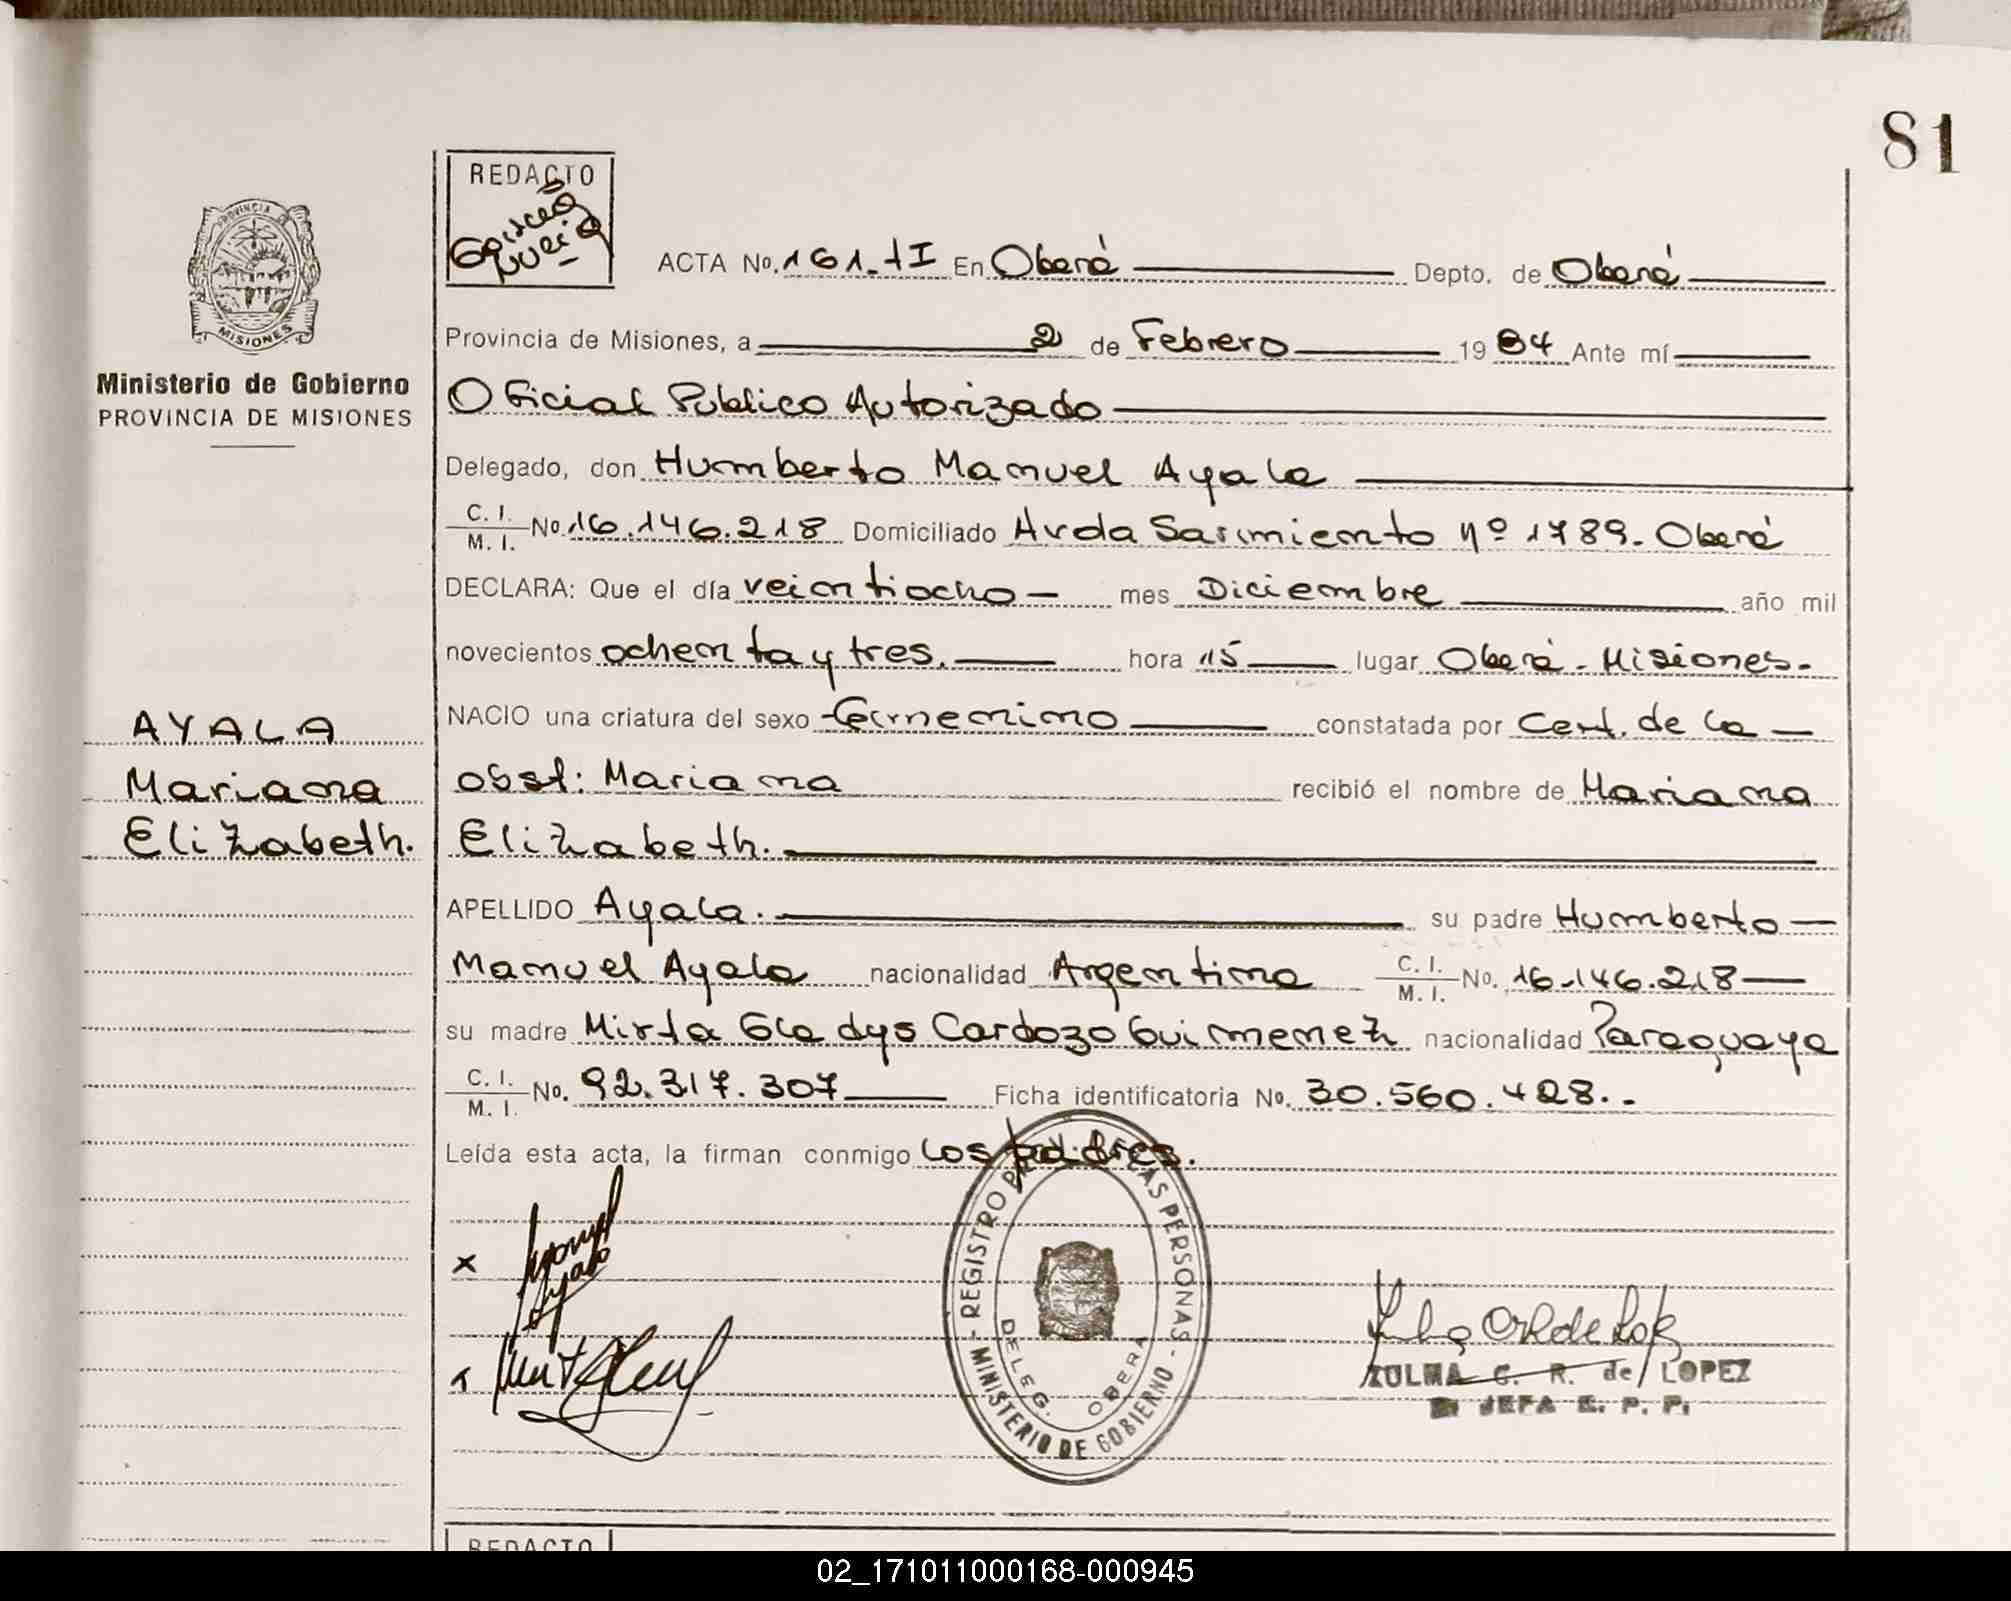 81
REDACTO
PROVINCIA DE
MISIONES
Ministerio de Gobierno
PROVINCIA DE MISIONES
ACTA No. 161.-tI En Oberá Depto. de Oberá
Provincia de Misiones, a 2 de Febrero 19 84 Ante mí
Oficial Publico Autorizado
Delegado, don Humberto Manuel Ayala
C. I. M. I. No. 16.146.218 Domiciliado Avda Sarmiento nº 1789.- Oberá
DECLARA: Que el día veintiocho- mes Diciembre año mil
novecientos ochenta y tres. hora 15 lugar Oberá - Misiones.-
AYALA
Mariana
Elizabeth.
NACIO una criatura del sexo femenino constatada por Cert. de la -
obst: Mariana recibió el nombre de Mariana
Elizabeth.
APELLIDO Ayala. su padre Humberto -
Manuel Ayala nacionalidad Argentina C. I. M. I. No. 16.146.218-
su madre Mirta Gladys Cardozo nacionalidad Paraguaya
C. I. M. I. No. 92.317.307 Ficha identificatoria No. 30.560.428..-
Leída esta acta, la firman conmigo los padres.
REGISTRO DE LAS PERSONAS - MINISTERIO DE GOBIERNO -
DELEG. OBERA
x
ZULMA C. R. de LOPEZ
JEFA
REDACTO
02_171011000168-000945